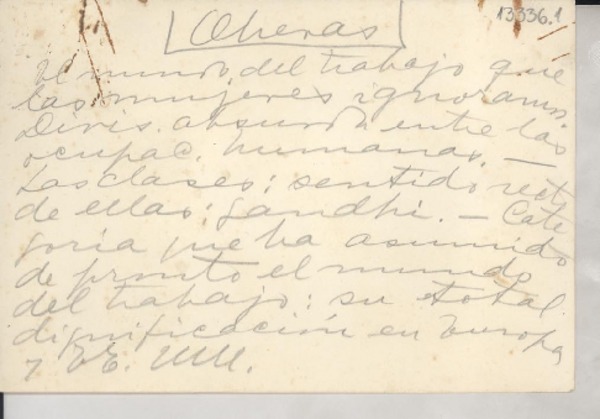 13336.1
Obreras
El mundo del trabajo que
las mujeres ignoramos
Divis. absurda entre las
ocupac. humanas. —
Las clases: sentido rect.
de ellas: Gandhi. — Cate
goría que ha asumido
de pronto el mundo
del trabajo: su total
dignificación en Europa
y EE. UU.